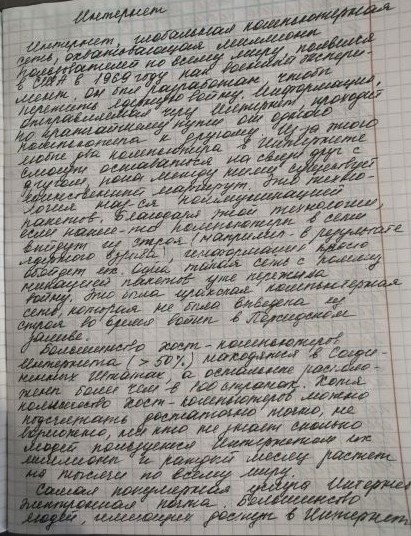 Интернет
Интернет, глобальная компьютерная
сеть, охватывающая миллионы
пользователей по всему миру, появился
в США в 1969 году как военный экспери-
мент. Он был разработан, чтобы
пережить ядерную войну. Информация,
отправляемая через Интернет, проходит
по кратчайшему пути от одного
компьютера к другому. Из-за этого
любые два компьютера в Интернете
смогут оставаться на связи друг с
другом, пока между ними существует
единственный маршрут. Эта техно-
логия наз-ся коммутацией
пакетов. Благодаря этой технологии,
если какие-то компьютеры в сети
выйдут из строя (например в результате
ядерного взрыва), информация просто
обойдет их. Одна такая сеть с коммму
пакетов уже пережила
войну. Это была иракская компьютерная
сеть, которая не была выведена из
строя во время войны в Персидском
заливе.
Большинство хост-компьютеров
Интернета (>50%) находятся в Соеди-
ненных Штатах, а остальные располо-
жен более чем в 100 странах. Хотя
количество хост-компьютеров можно
подсчитать достаточно точно, не
возможно, ни кто не знает сколько
людей пользуется интернетом их
миллионы и каждый месяц растет
на тысячи по всему миру.
Самая популярная услуга Интернет
электронная почта. Большинство
людей, имеющих доступ в Интернет